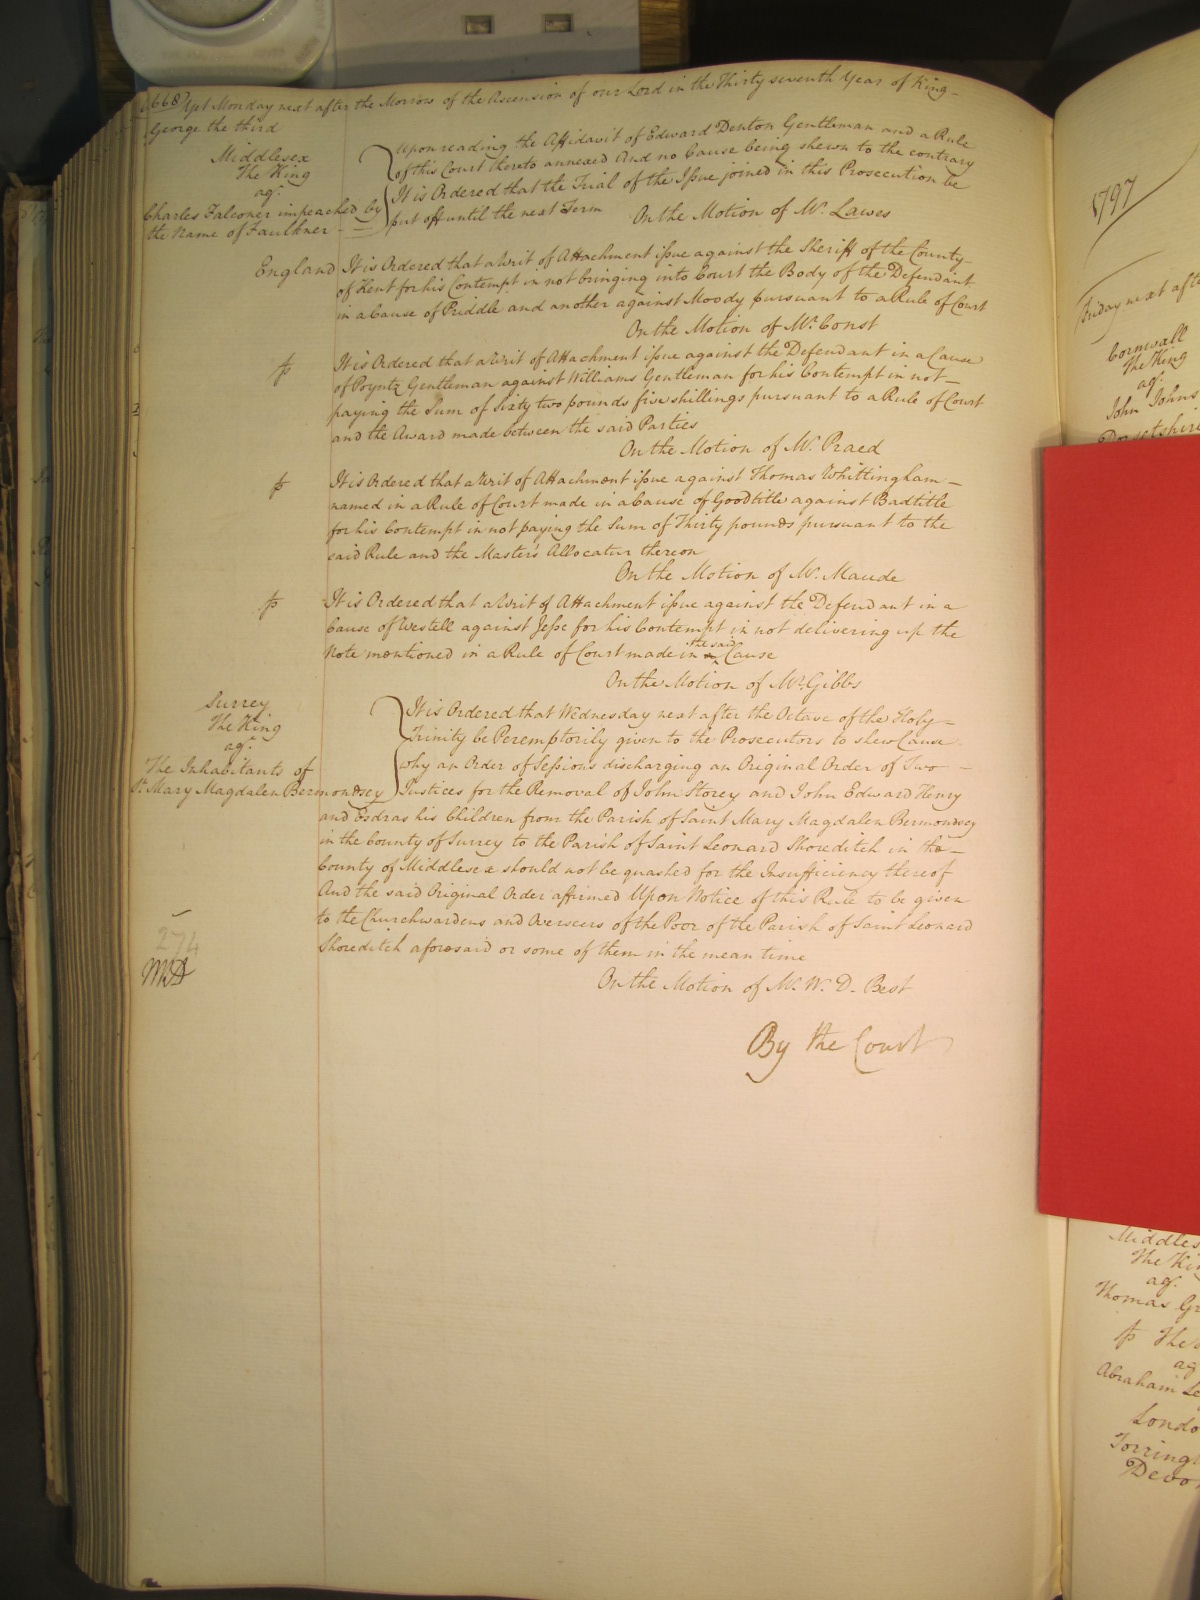 668 Yet Monday next after the Morrow of the Ascension of our Lord in the Thirty seventh Year of King
George the third
Middlesex
The King
agt.
Charles Falconer impeached by
the Name of Faulkner
Upon reading the Affidavit of Edward Denton Gentleman and a Rule
of this Court thereto annexed And no Cause being shewn to the contrary
It is Ordered that the Trial of the Issue joined in this Prosecution be
put off until the next Term
On the Motion of Mr. Lawes
England
It is Ordered that a Writ of Attachment issue against the Sheriff of the County
of Kent for his Contempt in not bringing into Court the Body of the Defendant
in a Cause of Priddle and another against Moody pursuant to a Rule of Court
On the Motion of Mr. Const
It is Ordered that a Writ of Attachment issue against the Defendant in a Cause
of Poyntz Gentleman against Williams Gentleman for his Contempt in not
paying the Sum of Sixty two pounds five shillings pursuant to a Rule of Court
and the Award made between the said Parties
On the Motion of Mr. Praed
It is Ordered that a Writ of Attachment issue against Thomas Whittingham
named in a Rule of Court made in a Cause of Goodtitle against Badtitle
for his Contempt in not paying the Sum of Thirty pounds pursuant to the
said Rule and the Master's Allocatur thereon
On the Motion of Mr. Maude
It is Ordered that a Writ of Attachment issue against the Defendant in a
Cause of Westell against Jesse for his Contempt in not delivering up the
Note mentioned in a Rule of Court made in the said Cause
On the Motion of Mr. Gibbs
Surrey
The King
agt.
The Inhabitants of
St. Mary Magdalen Bermondsey
It is Ordered that Wednesday next after the Octave of the Holy
Trinity be Peremptorily given to the Prosecutors to shew Cause
why an Order of Sessions discharging an Original Order of Two
Justices for the Removal of John Storey and John Edward Henry
and Esdras his Children from the Parish of Saint Mary Magdalen Bermondsey
in the County of Surrey to the Parish of Saint Leonard Shoreditch in the
County of Middlesex should not be quashed for the Insufficiency thereof
And the said Original Order affirmed Upon Notice of this Rule to be given
to the Churchwardens and Overseers of the Poor of the Parish of Saint Leonard
Shoreditch aforesaid or some of them in the mean time
On the Motion of Mr. W. D. Best
By the Court
274
1797
Friday next afte
Cornwall
The King
agt.
John Johns
Dorsetshire
Middles
The Kin
agt.
Thomas Gr
The
ag
Abraham Le
Londo
Torringt
Devo